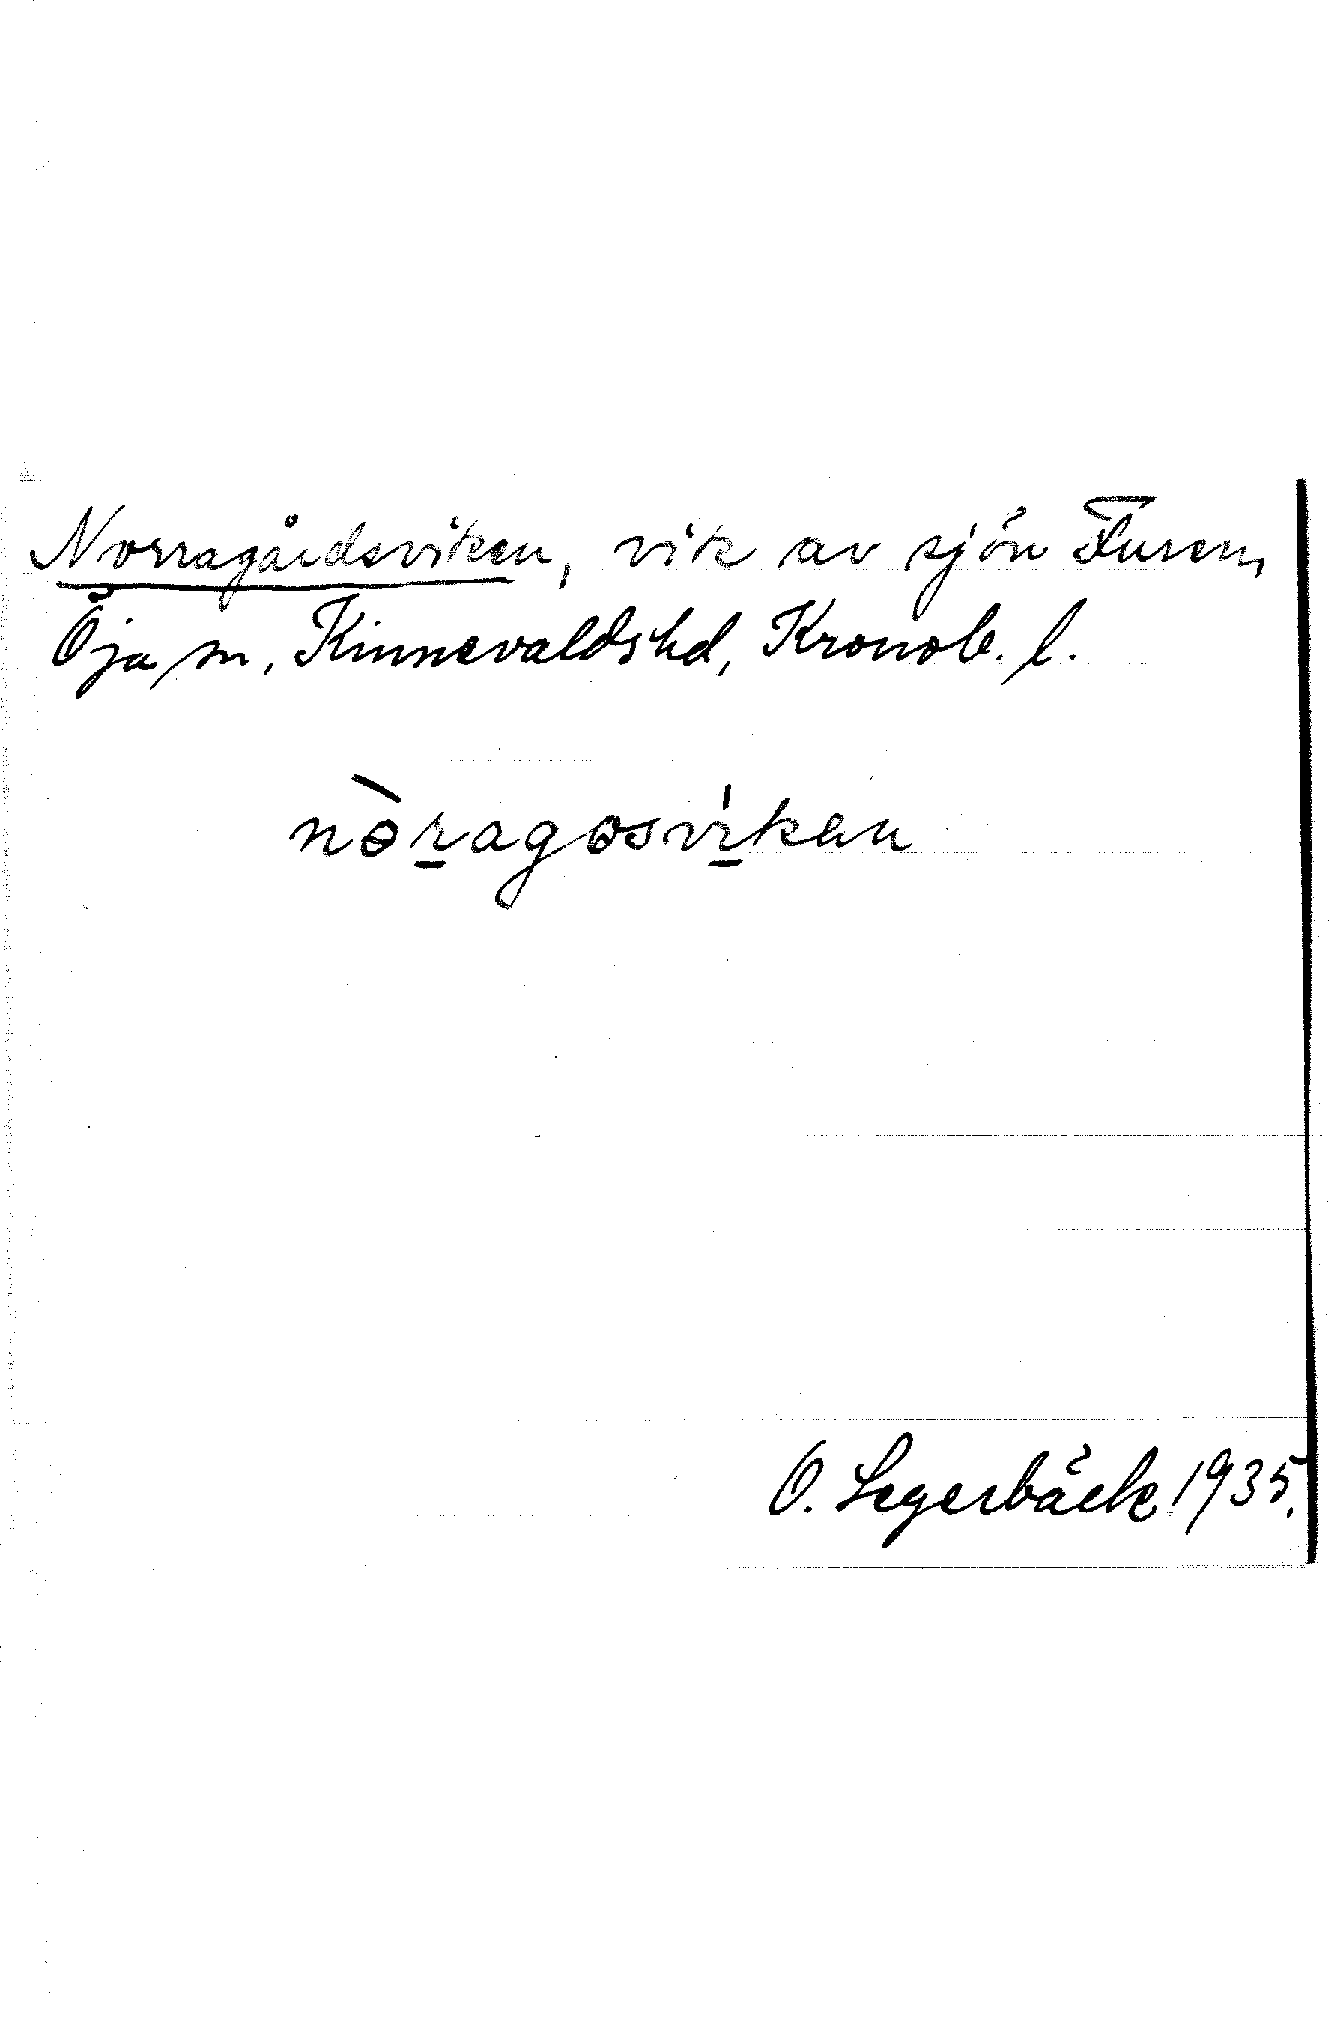 Norragårdsviken, vik av sjön Furen,
Öja sn, Kinnevaldshd, Kronob. l.
nòragosvíken
O. Segerbäck 1935.